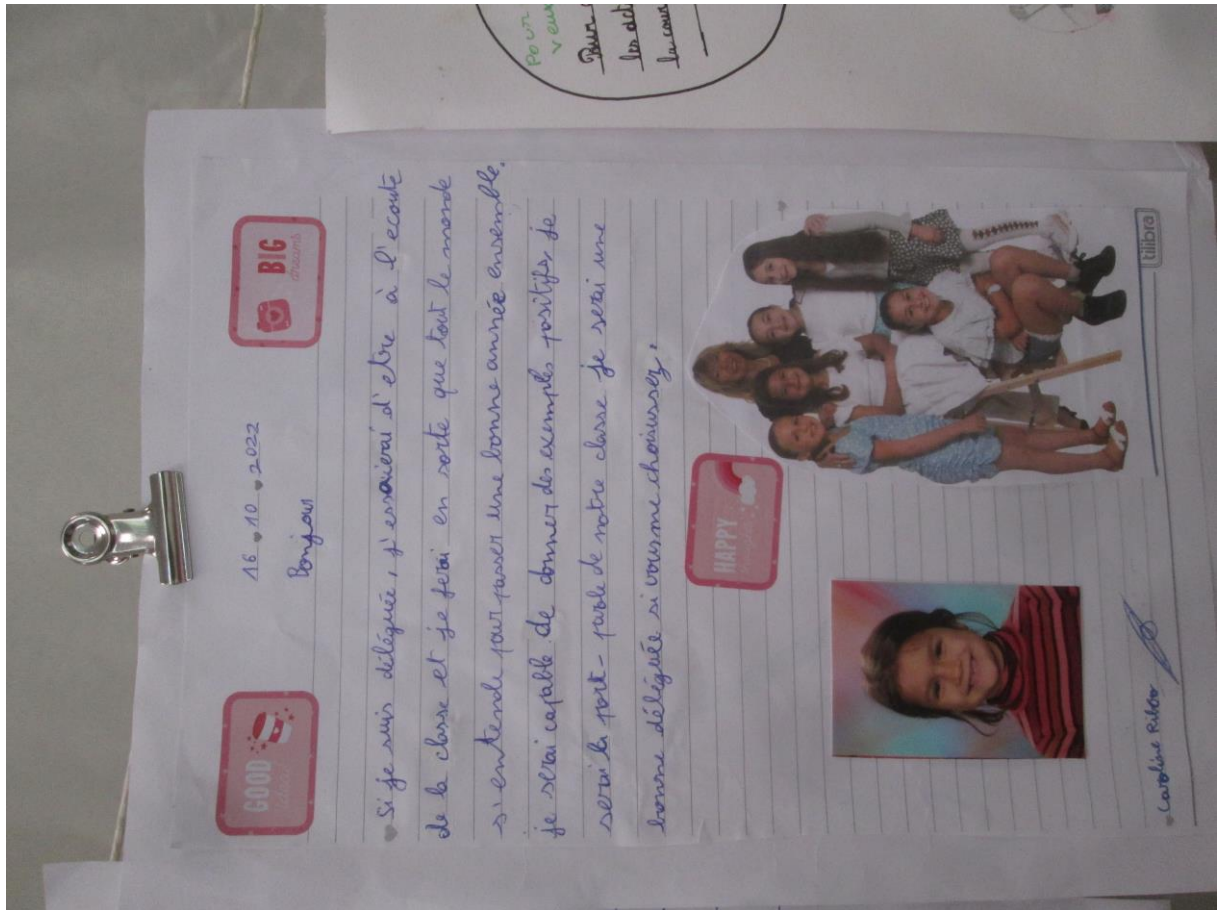 GOOD
BIG
dreams
16 10 2022
Bonjour
Si je suis déléguée, j'essaierai d'etre à l'ecoute
de la classe et je ferai en sorte que tout le monde
s'entende pour passer une bonne année ensemble.
je serai capable de donner des exemples positifs je
serai la port-parole de notre classe je serai une
bonne déléguée si vous me choisissez.
HAPPY
tilibra
Caroline
Pour
veux
Pour
les
la cour